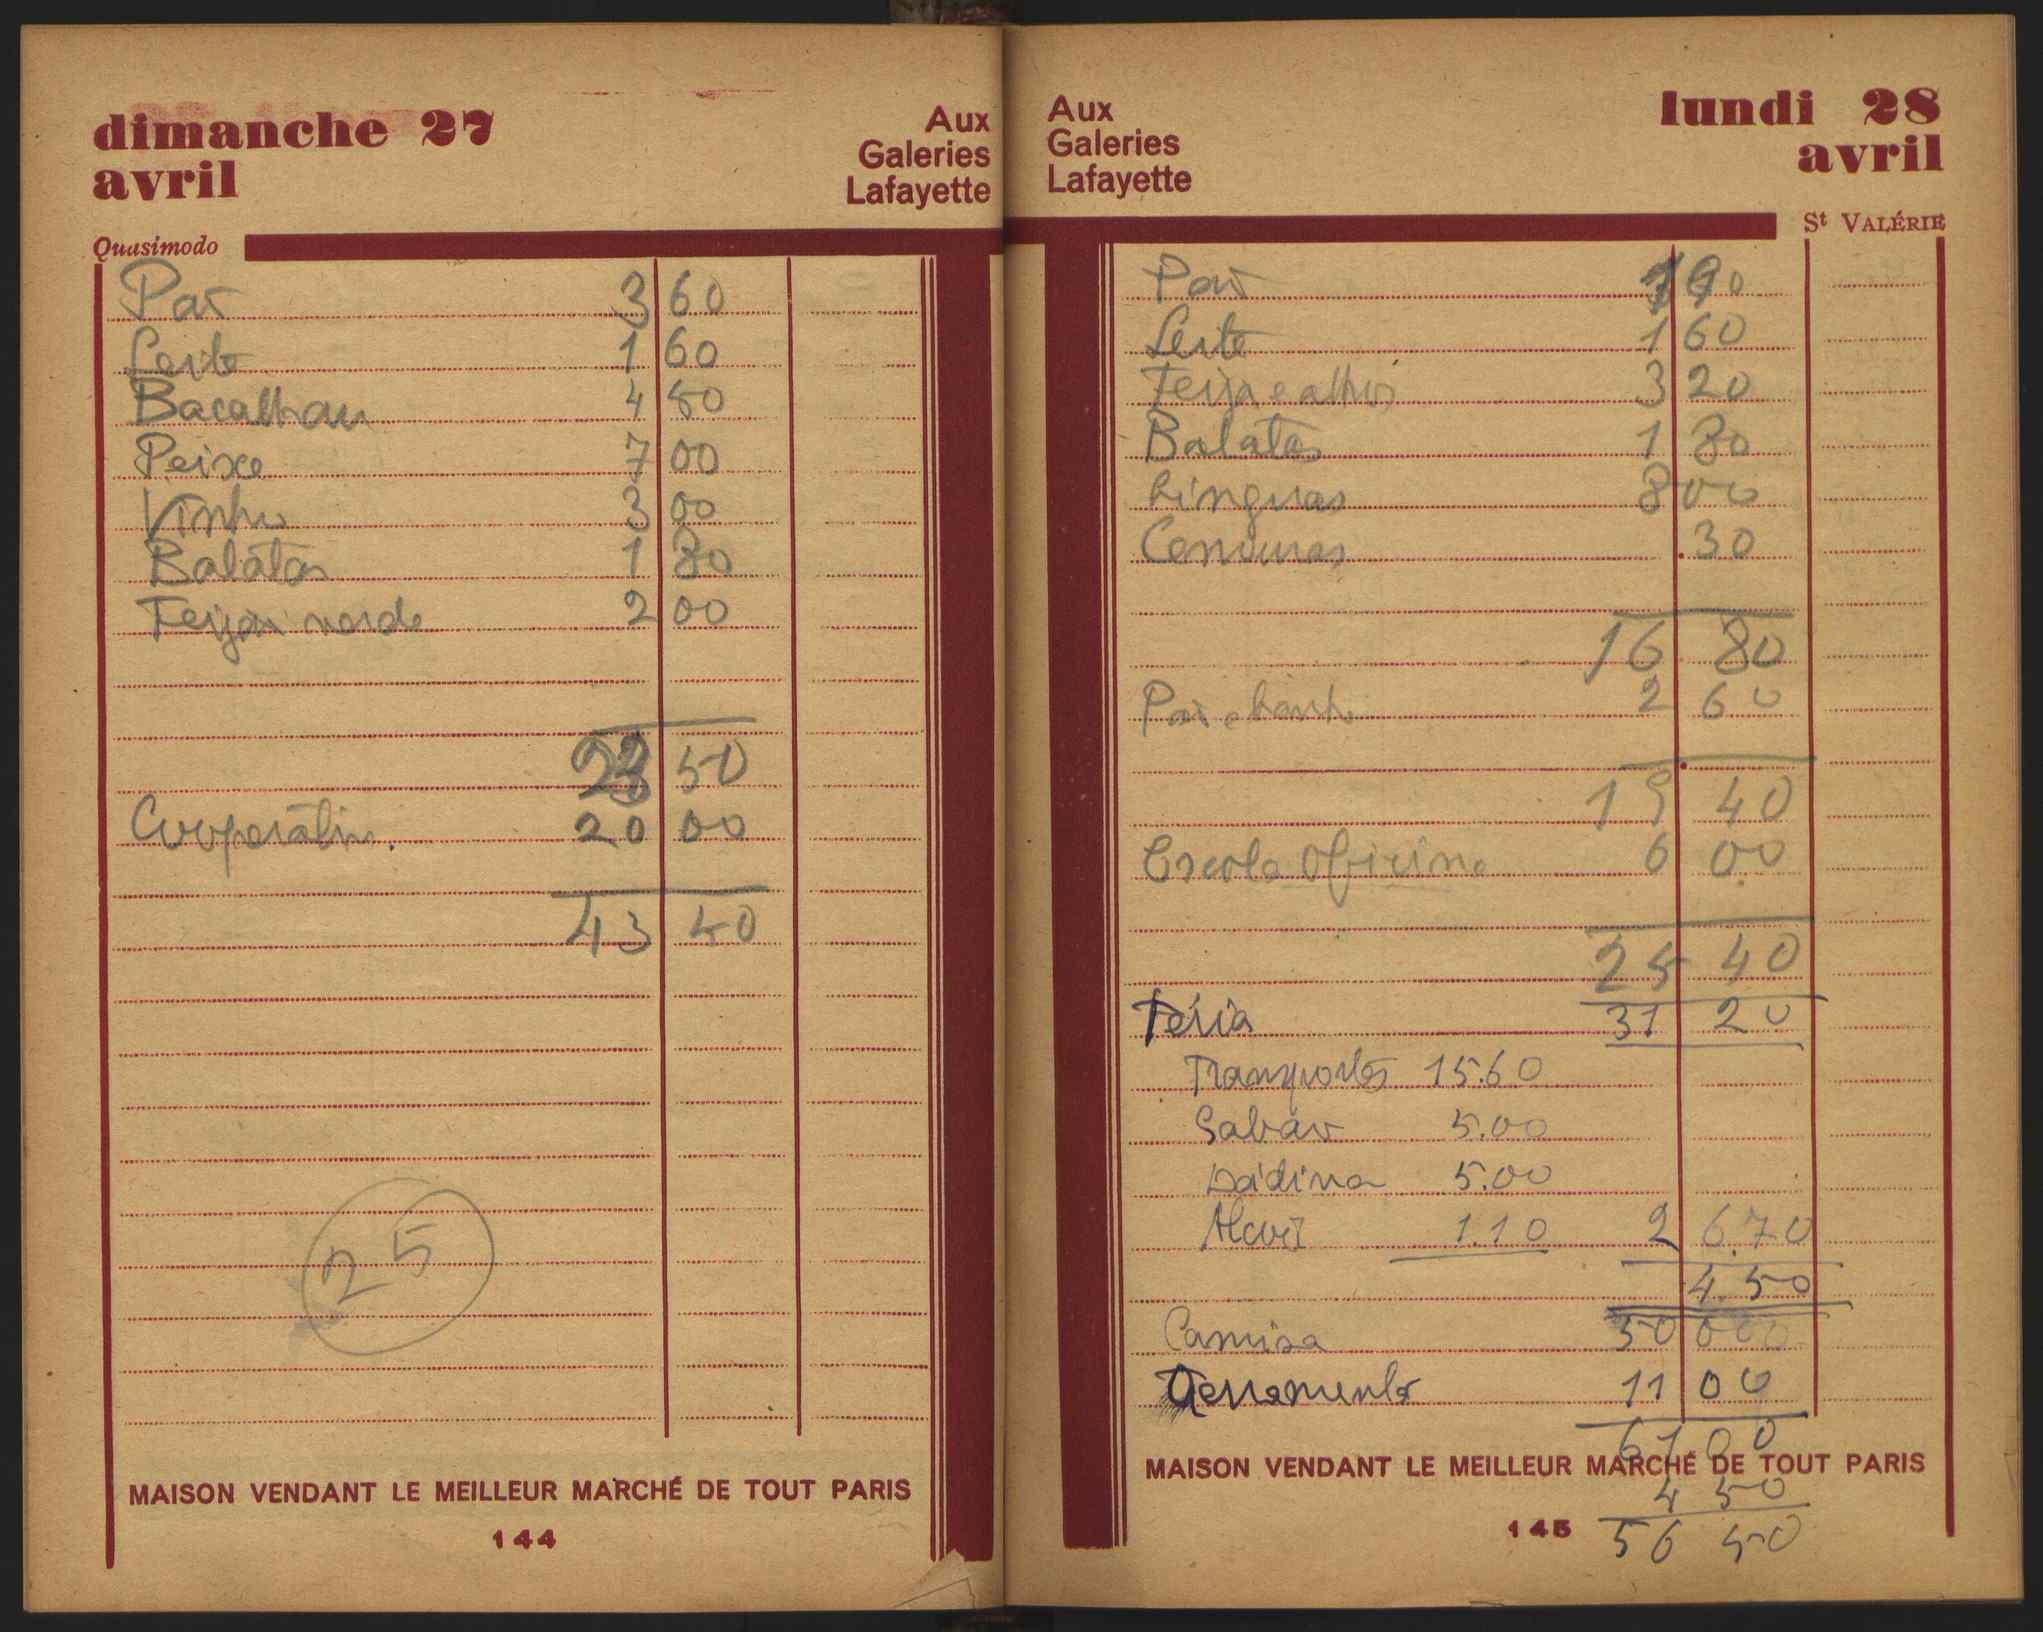 dimanche 27
avril
Aux
Galeries
Lafayette
Quasimodo
Pão 3 60
Leite 1 60
Bacalhau 4 50
Peixe 7 00
Vinho 3 00
Batatas 1 80
Feijão verde 2 00
23 50
Cooperativa. 20 00
43 50
25
MAISON VENDANT LE MEILLEUR MARCHÉ DE TOUT PARIS
144
Aux
Galeries
Lafayette
lundi 28
avril
St VALÉRIE
Pão 1 90
Leite 1 60
Feijão e alhos 3 20
Batatas 1 80
Linguas 8 00
Cenouras .30
16 80
Pão 2 60
19 40
Escola Oficina 6 00
25 40
Féria 31 20
Transportes 15.60
Sabão 5.00
5.00
1.10 2 6.70
4.50
Camisa 50 000
11 00
61 00
MAISON VENDANT LE MEILLEUR MARCHÉ DE TOUT PARIS
4 50
145
56 50